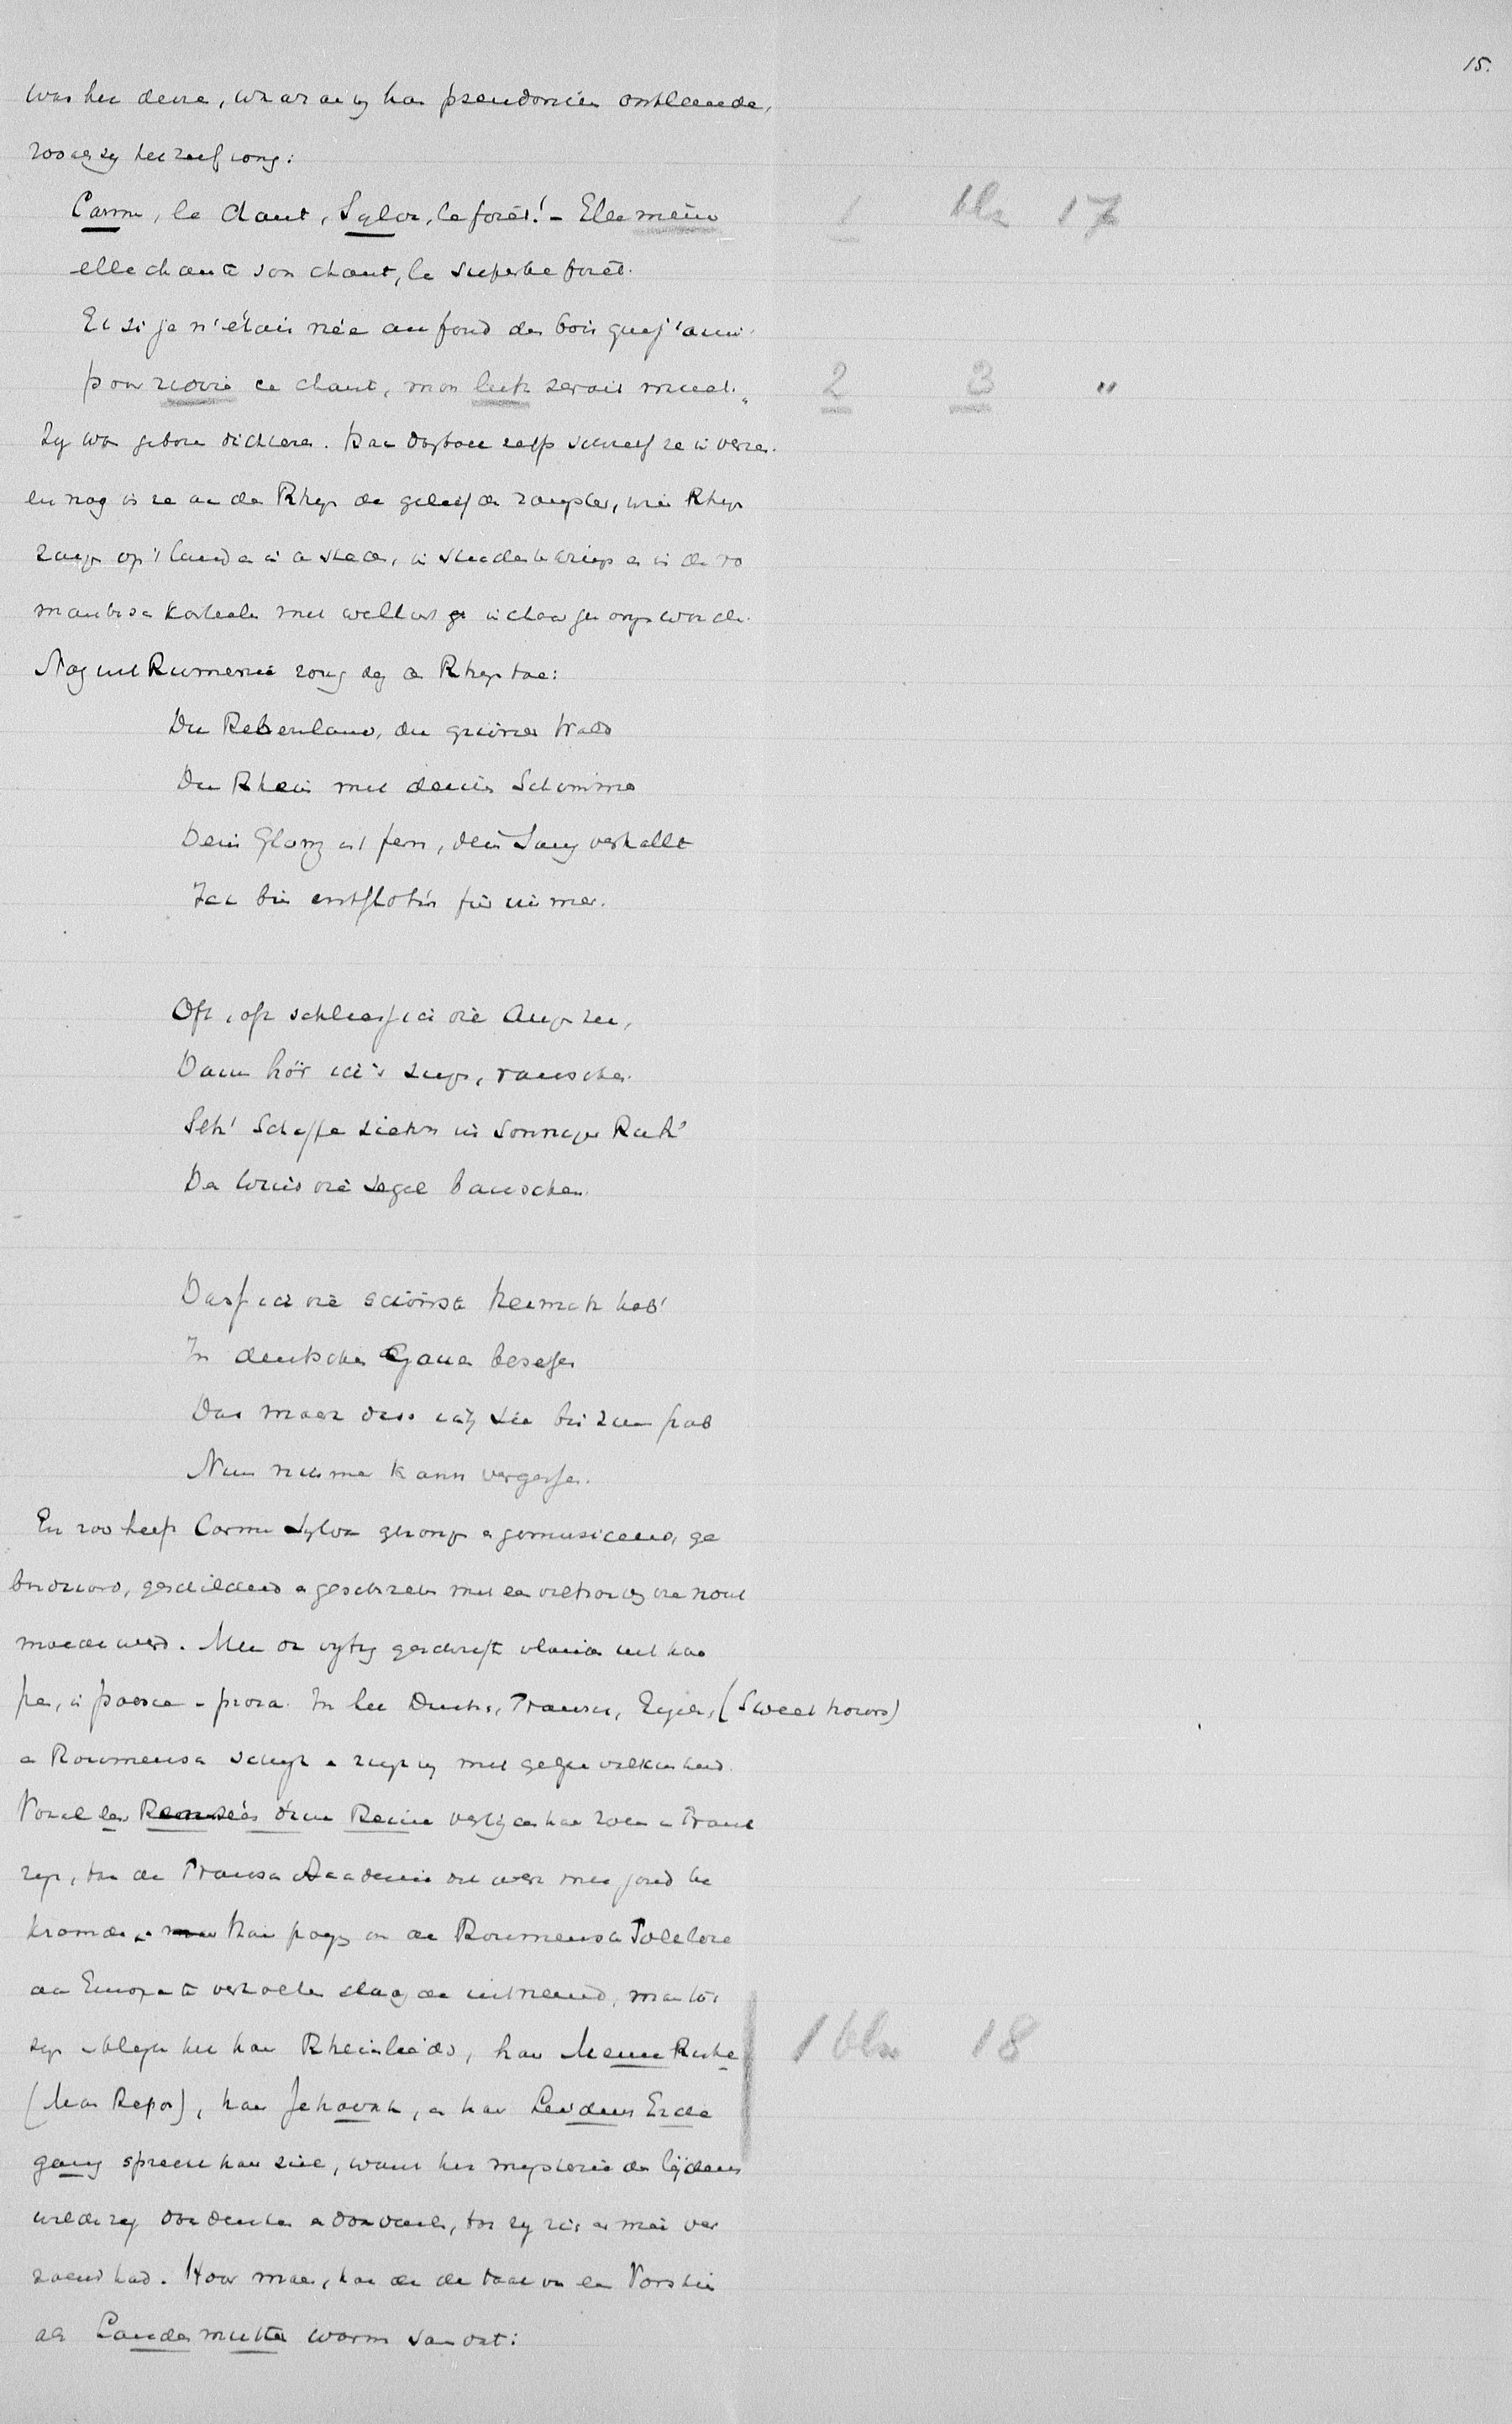 15.
was het deze, waaraan zij haar pseudoniem ontleende,
zooals zij het zelf zong:
Carmen, le chant, Sylva, la forêt! - Elle même
elle chante son chant, la superbe forêt.
Et si je n'étais née au fond des bois que j'aime
pour ce chant, mon luth serait muet.
Zij was geboren dichteres. Haar dagboek zelf schreef ze in verzen.
En nog is ze aan den Rhijn de geliefde zangster, wier Rhijn
zangen op 't land en in de steden, in studentenkringen en in de ro
mantische kasteelen met wellust in choor gezongen worden.
Nog uit Rumenië zong zij den Rhijn toe:
Du Rebenland, du grüner Wald
Du Rhein mit deinem Schimmer
Dein Glanz ist fern, dein Sang verhallt
Ich bin entfloh'n für immer.
Oft, oft schliess ich die Augen zu,
Dann hör ich's singen, rauschen
Seh' Schiffe ziehen in sonniger Ruh'
Den Wind die Segel bauschen.
Dass ich die schönste Heimath hab'
In deutschen Gauen besessen
Das macht dass ich sie bis zum Grab
Nun nimmer kann vergessen.
En zoo heeft Carmen Sylva gezongen en gemusiceerd, ge
borduurd, geschilderd en geschreven met een vlethoring die nooit
moede werd. Meer dan vijftig geschriften vloeiden uit haar
pen, in poëzie en proza. In het Duitsch, Fransch, Engelsch, (Sweet hours)
en Roumeensch schrijft en zingt zij met gelijke volkomenheid.
Vooral les Pensées d'une Reine vestigden haar roem in Frank
rijk, toen de Fransche Academie dit werk met goud be
kroonde. Haar pogen om de Roumeensche Folklore
aan Europa te vertolken slaagde uitnemend, maar toch
zijn en blijven het haar Rheinlieder, haar Meine Ruhe
(Mea Repos), haar Jehovah, en haar Leidens Erden
gang spreekt haar ziel, want het mysterie des lijdens
wilde zij doordenken en doorvoelen, tot zij zich er mee ver
zoend had. Hoor maar, hoe de taal van een Vorstin
als Landesmutter worm
1 blz 17
2 3 "
1 blz 18